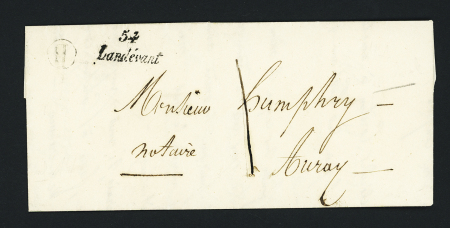 54
Landévant
H
Monsieur Humphry
notaire
Auray